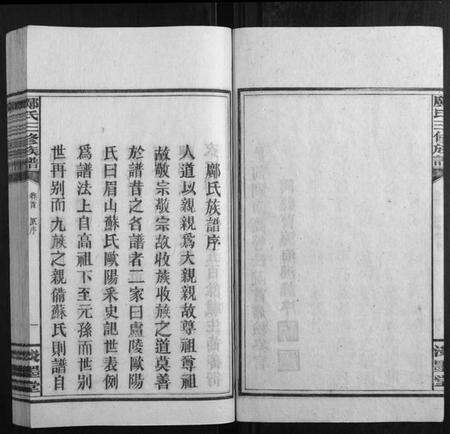 鄺氏族譜序
人道以親親爲大親親故尊祖尊祖
故敬宗敬宗故收族收族之道莫善
於譜昔之名譜者二家曰廬陵歐陽
氏曰眉山蘇氏歐陽采史記世表例
爲譜法上自高祖下至元孫而世別
世再别而九族之親備蘇氏則譜自
鄺氏三修族譜
卷首
原序
一
堂
鄺氏三修族譜
堂